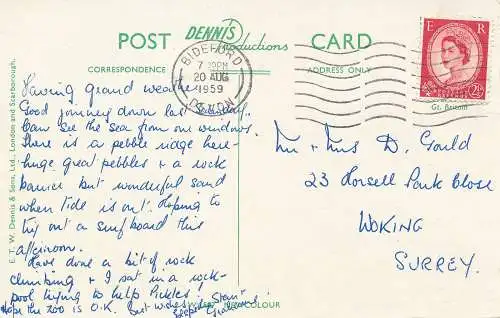 POST DENNIS Productions CARD
CORRESPONDENCE
ADDRESS ONLY
BIDEFORD
7 30PM
20 AUG
1959
DEVON
E R
2½D
Gt. Britain
Having grand weather
Good journey down last Sunday.
Can see the sea from our windows.
There is a pebble ridge here -
huge great pebbles & a rock
barrier but wonderful sand
when tide is out. Hoping to
try out a surfboard this
afternoon.
Have done a bit of rock
climbing & I sat in a rock-
pool trying to help Pickles!
Hope the zoo is O.K. Best wishes Stan
Mr & Mrs D. Gould
23 Horsell Park Close
WOKING
SURREY.
E. T. W. Dennis & Sons, Ltd., London and Scarborough.
COLOUR